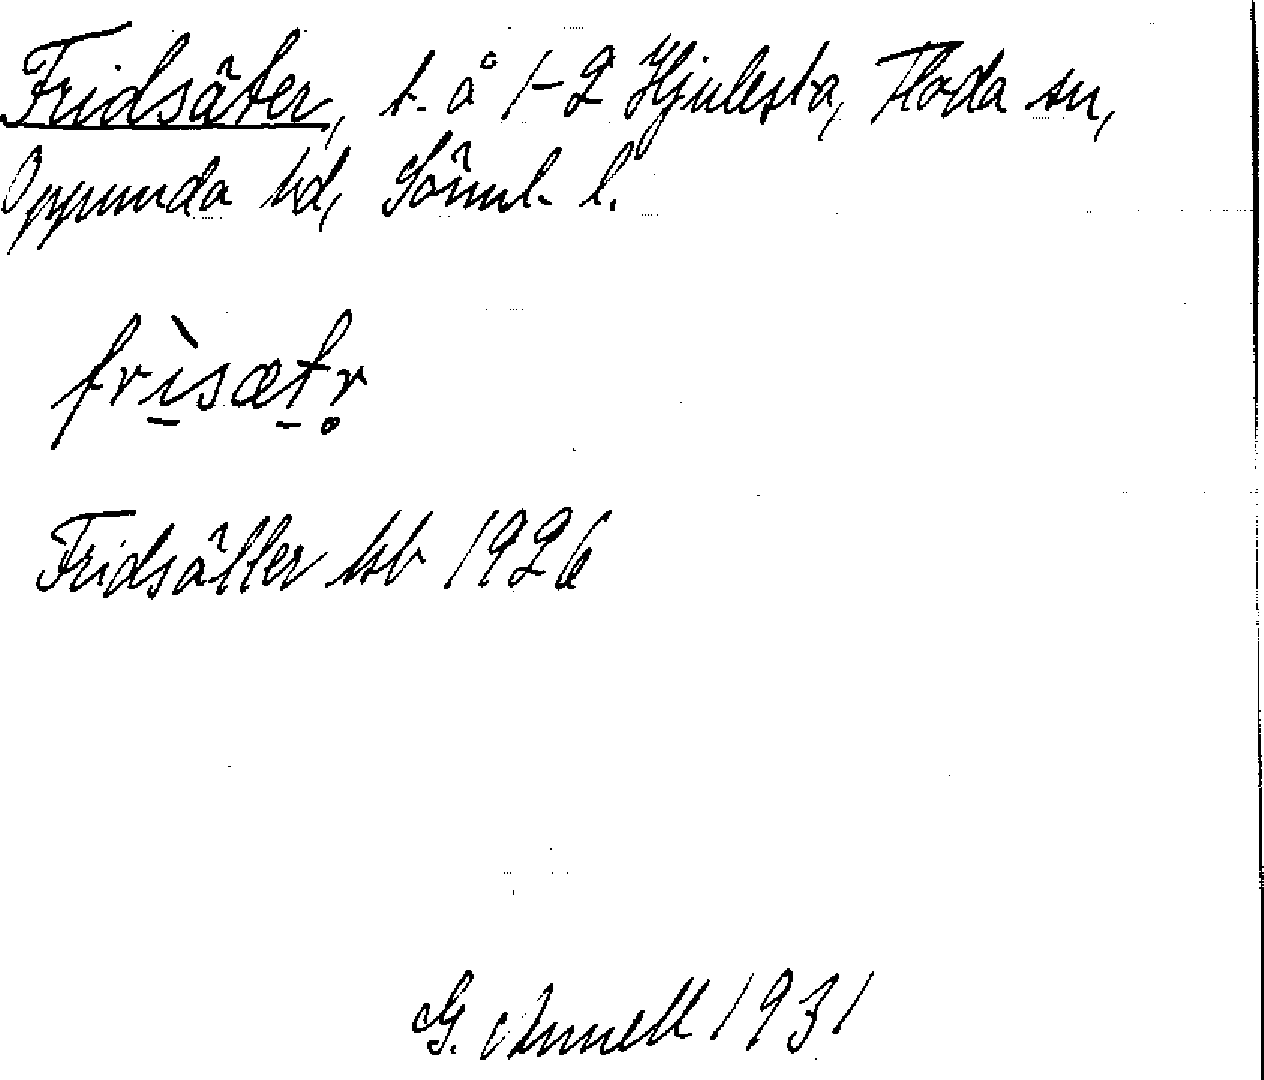 Fridsäter, t. å 1-2 Hjulesta, Floda sn,
Oppunda hd, Söml. l.
frìsætr̥
Fridsätter kb 1926
G. Annell 1931